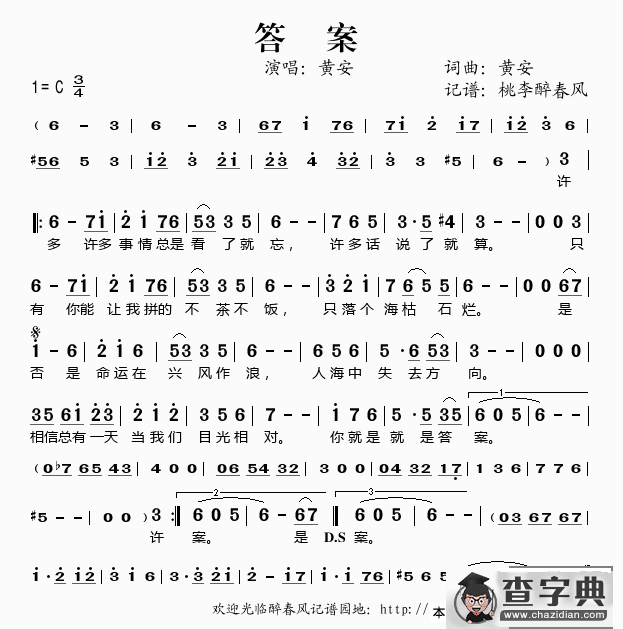 答 案
演唱：黄安 词曲：黄安
1=C 3/4 记谱：桃李醉春风
( 6 - 3 | 6 - 3 | 67 i 76 | 7i 2 i7 | i2 3 6 |
#56 5 3 | i2 3 2i | 23 4 32 | 3 3 #5 | 6 - ) 3 |
许
‖: 6 - 7i | 2 i 76 | 53 3 5 | 6 - - | 7 6 5 | 3· 5 #4 | 3 - - | 0 0 3 |
多 许多事情总是看了就忘， 许多话说了就算。 只
6 - 7i | 2 i 76 | 53 3 5 | 6 - - | 3 2 i | 7 6 5 5 | 6 - - | 0 0 67 |
有 你能让我拼的不茶不饭， 只落个海枯石烂。 是
i - 6 | 2 i 6 | 53 3 5 | 6 - - | 6 5 6 | 5 · 6 53 | 3 - - | 0 0 0 |
否 是命运在兴风作浪， 人海中失去方向。
1
35 6i 23 | 2 i 2 | 7 6 5 | 7 - - | i 7 6 | 5 · 5 35 | 6 0 5 | 6 - - |
相信总有一天当我们目光相对。 你就是就是答案。
(0b7 65 43 | 4 0 0 | 06 54 32 | 3 0 0 | 04 32 17 | 1 3 6 | 7 7 6 |
2 3
#5 - - | 0 0 ) 3 :‖ 6 0 5 | 6 - 67 ‖ 6 0 5 | 6 - - | (03 67 67 |
许 案。 是 D.S 案。
i · 2 i2 | 3 · 2 12
欢迎光临醉春风记谱园地：http://本
查字典
www.chazidian.com